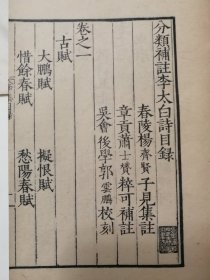 分類補註李太白詩目録
春陵楊齊賢子見集註
章貢蕭士贇粹可補註
吳會後學郭雲鵬校刻
卷之一
古賦
大鵬賦
擬恨賦
惜餘春賦
愁陽春賦